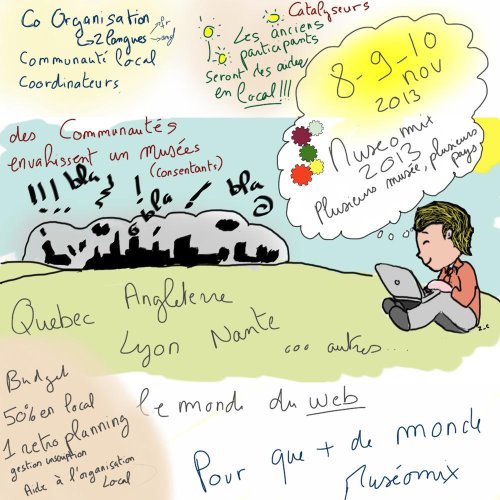 Co Organisation
↳ 2 langues fr
angl
Communauté local
Coordinateurs
Catalyseurs
Les anciens
participants
seront des aides
en local!!!
8-9-10
nov
2013
Museomix
2013
Plusieurs musée, plusieurs
pays
des Communautés
envahissent un musées
(consentants)
!!! bla ! bla
bla
Quebec Angleterre
Lyon Nante
... autres....
Budget
50% en local
1 retro planning
gestion inscription
Aide à l'organisation
local
le monde du web
Pour que + de monde
Muséomix